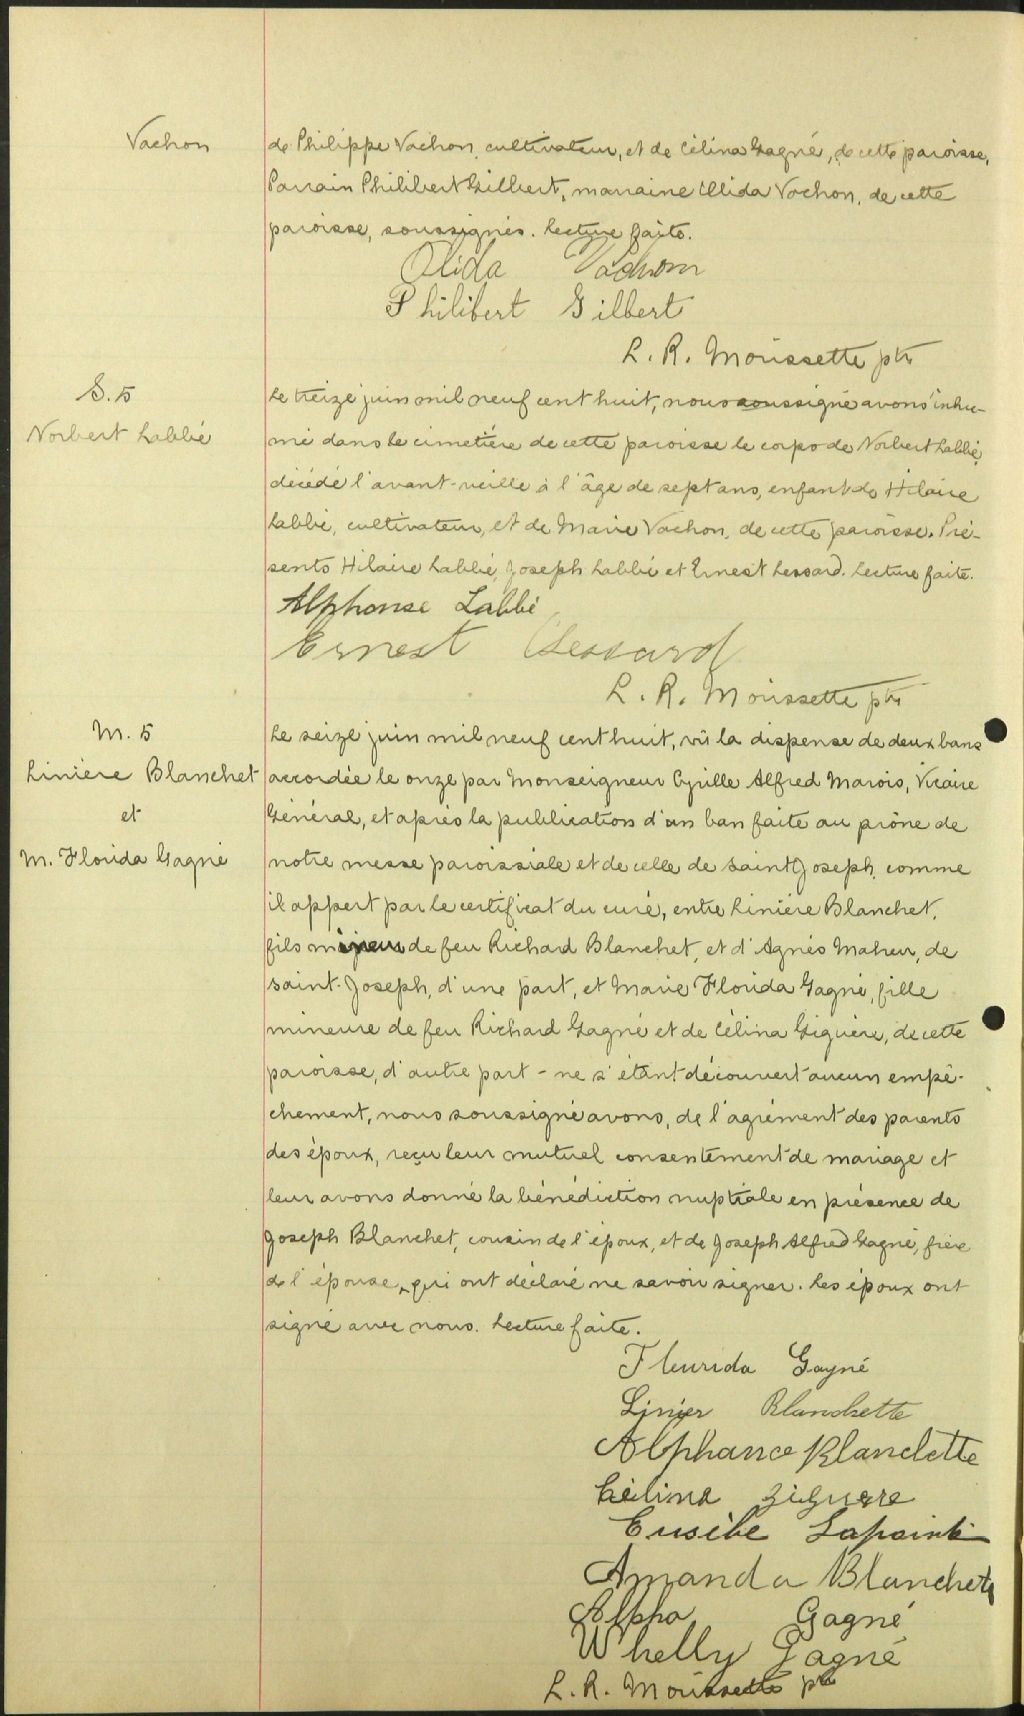 Vachon
de Philippe Vachon, cultivateur, et de Célina Gagné, de cette paroisse.
Parrain Philibert Gilbert, marraine Olida Vachon, de cette
paroisse, soussignés. Lecture faite.
Olida Vachon
Philibert Gilbert
L. R. Moussette ptre
S. 5
Norbert Labbé
Le treize juin mil neuf cent huit, nous soussigné avons inhu-
mé dans le cimetière de cette paroisse le corps de Norbert Labbé,
décédé l'avant-veille à l'âge de sept ans, enfant de Hilaire
Labbé, cultivateur, et de Marie Vachon, de cette paroisse. Pré-
sents Hilaire Labbé, Joseph Labbé et Ernest Lessard. Lecture faite.
Alphonse Labbé
Ernest Lessard
L. R. Moussette ptre
M. 5
Linière Blanchet
et
M. Florida Gagné
Le seize juin mil neuf cent huit, vû la dispense de deux bans
accordée le onze par Monseigneur Cyrille Alfred Marois, Vicaire
Général, et après la publication d'un ban faite au prône de
notre messe paroissiale et de celle de Saint Joseph, comme
il appert par le certificat du curé, entre Linière Blanchet,
fils de feu Richard Blanchet, et d'Agnès Maheu, de
Saint-Joseph, d'une part, et Marie Florida Gagné, fille
mineure de feu Richard Gagné et de Célina Giguère, de cette
paroisse, d'autre part - ne s'étant découvert aucun empê-
chement, nous soussigné avons, de l'agrément des parents
des époux, reçu leur mutuel consentement de mariage et
leur avons donné la bénédiction nuptiale en présence de
Joseph Blanchet, cousin de l'époux, et de Joseph Alfred Gagné, frère
de l'épouse, qui ont déclaré ne savoir signer. Les époux ont
signé avec nous. Lecture faite.
Fleurida Gagné
Linier Blanchette
Alphance Blanclette
Célina Ziguere
Eusèbe Lapointe
Amanda Blanchete
Alpha Gagné
Whelly Gagné
L. R. Moussette ptre